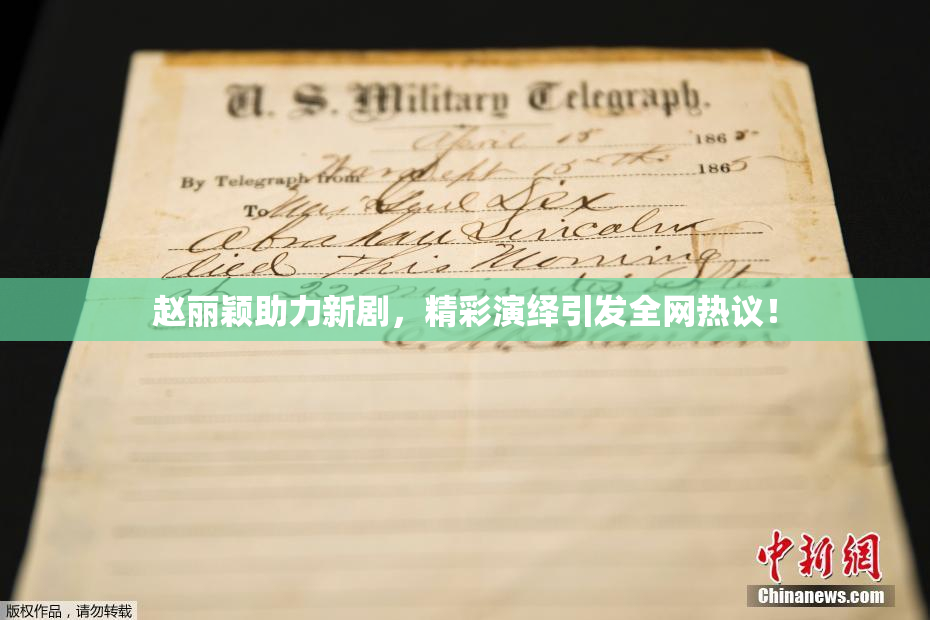 U. S. Military Telegraph.
April 15 1865
By Telegraph from War Dept 15th 1865
To Maj Genl Dix
Abraham Lincoln
died This Morning
at 22 minutes after
赵丽颖助力新剧，精彩演绎引发全网热议！
E. M. Stanton
中新网
Chinanews.com
版权作品，请勿转载